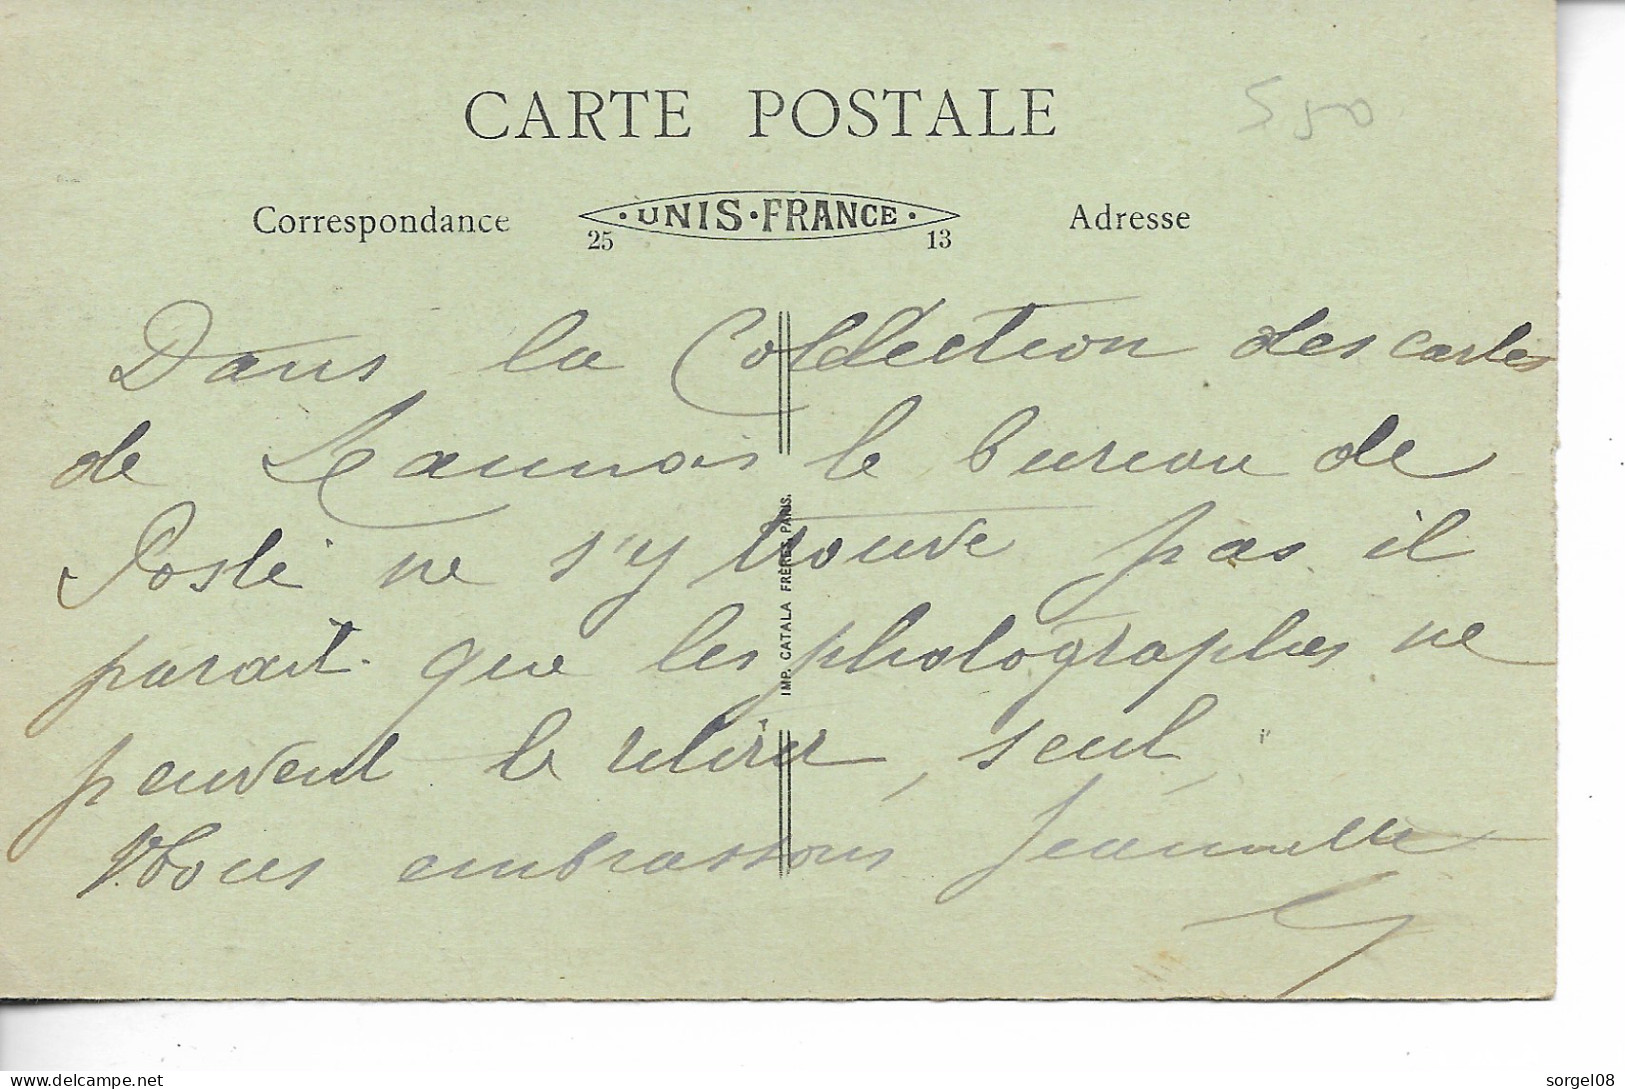 CARTE POSTALE
550
Correspondance
UNIS·FRANCE
25 13
Adresse
Dans la Collection des cartes
de Launois le bureau de
Poste ne s'y trouve pas il
parait que les photographes ne
peuvent le retirer, seul,
Vous embrassons Jeannette
IMP. CATALA FRÈRES, PARIS.
sorgel08